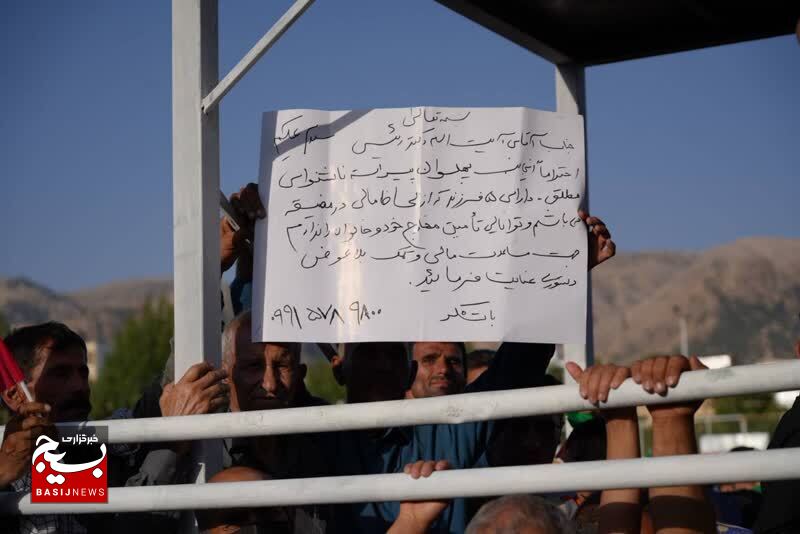 بسمه تعالی
جناب آقای آیت الله دکتر رئیسی سلام علیکم
احتراماً اینجانب پهلوان پیراسته ناشنوای
مطلق - دارای ۵ فرزند که از لحاظ مالی در مضیقه
می باشم و توانائی تأمین مخارج خود و خانواده را ندارم
جهت مساعدت مالی و کمک بلاعوض
دستوری عنایت فرمائید.
باتشکر
۰۹۹۱ ۵۷۸ ۹۸۰۰
خبرگزاری
بسیج
BASIJNEWS